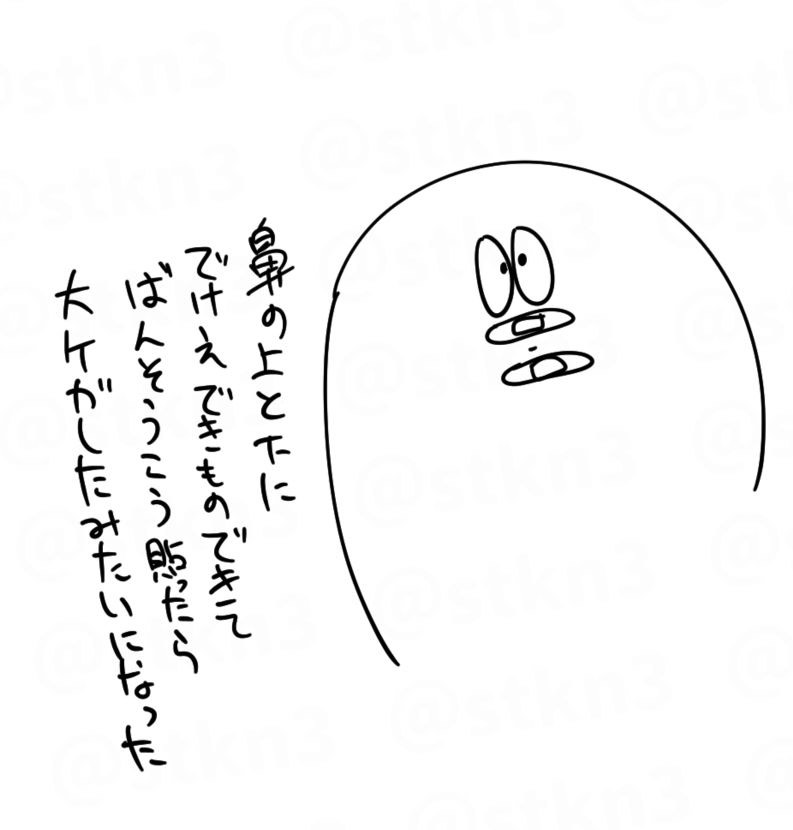 鼻の上と下に
でけえできものできて
ばんそうこう貼ったら
大ケガしたみたいになった
@stkn3